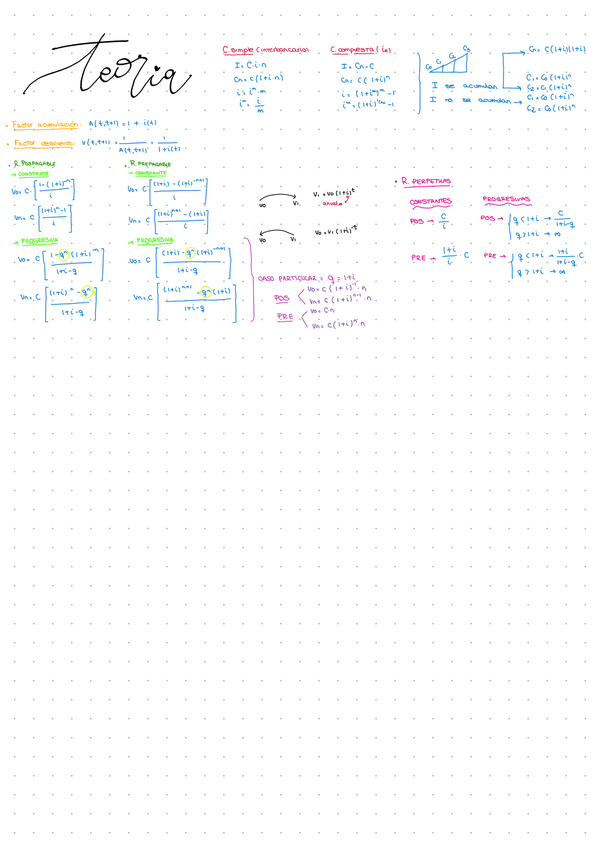 Teoria
C. simple (interbancario)
I = C·i·n
Cn = C(1+i·n)
i = iᵐ·m
iᵐ = i/m
C. compuesta (ia)
I = Cn-C
Cn = C(1+i)ⁿ
i = (1+iᵐ)ᵐ -1
iᵐ = (1+i)^(1/m) -1
C0 C1 C2 C3
I se acumulan
I no se acumulan
Cn = C(1+i)(1+i)
C1 = C0(1+i)ⁿ
C2 = C1(1+i)ⁿ
C1 = C0(1+i)ⁿ
C2 = C0(1+i)ⁿ
• Factor acumulación: A(t,t+1) = 1 + i(t)
• Factor descuento: V(t,t+1) = 1/A(t,t+1) = 1/1+i(t)
• R. POSPAGABLE
→ CONSTANTE
V0 = C·[1-(1+i)⁻ⁿ/i]
Vn = C [(1+i)ⁿ-1/i]
→ PROGRESIVA
V0 = C [1-gⁿ(1+i)⁻ⁿ/1+i-g]
Vn = C [(1+i)ⁿ-gⁿ/1+i-g]
• R. PREPAGABLE
→ CONSTANTE
V0 = C·[(1+i)-(1+i)⁻ⁿ⁺¹/i]
Vn = C [(1+i)ⁿ⁺¹-(1+i)/i]
→ PROGRESIVA
V0 = C [(1+i)-gⁿ(1+i)⁻ⁿ⁺¹/1+i-g]
Vn = C [(1+i)ⁿ⁺¹-gⁿ(1+i)/1+i-g]
V0 V1 V1 = V0(1+i)ᵗ
anual
V0 V1 V0 = V1(1+i)⁻ᵗ
CASO PARTICULAR = g = 1+i
POS
V0 = C(1+i)⁻¹·n
Vn = C(1+i)ⁿ⁻¹·n
PRE
V0 = Cn
Vn = C(1+i)ⁿ·n
• R. PERPETUAS
CONSTANTES
POS → C/i
PRE → 1+i/i · C
PROGRESIVAS
POS → g<1+i → C/1+i-g
g>1+i → ∞
PRE → g<1+i → 1+i/1+i-g · C
g>1+i → ∞